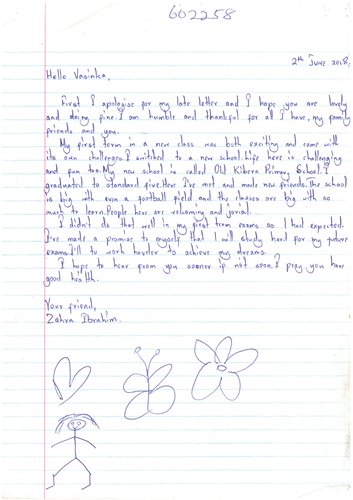 602258
2nd June 2018.
Hello Vasinka,
First I apologise for my late letter and I hope you are lovely
and doing fine. I am humble and thankful for all I have, my family
friends and you.
My first term in a new class was both exciting and came with
its own challenges. I switched to a new school. Life here is challenging
and fun too. My new school is called Old Kibera Primary School. I
graduated to standard five. Here I've met and made new friends. The school
is big with even a football field and the classes are big with so
much to learn. People here are welcoming and jovial.
I didn't do that well in my first term exams as I had expected.
I've made a promise to myself that I will study hard for my future
exams. I'll to work harder to achieve my dreams.
I hope to hear from you sooner if not soon. I pray you have
good health.
Your friend,
Zahra Ibrahim.